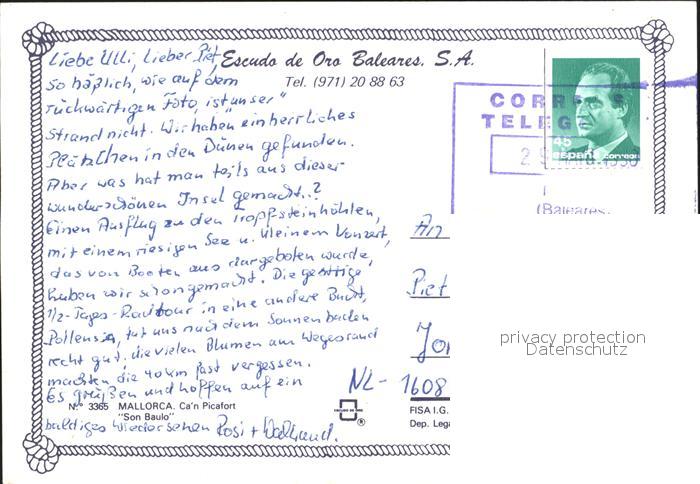 Liebe Ulli, Lieber Piet,
so häßlich, wie auf dem
rückwärtigen Foto, ist "unser"
Strand nicht. Wir haben ein herrliches
Plätzchen in den Dünen gefunden.
Aber was hat man teils aus dieser
wunderschönen Insel gemacht..?
Einen Ausflug zu den Tropfsteinhöhlen,
mit einem riesigen See u. kleinem Konzert,
das von Booten aus dargeboten wurde,
haben wir schon gemacht. Die gestrige
1/2-Tages-Radtour in eine andere Bucht,
Pollensa, tat uns nach dem Sonnenbaden
recht gut, die vielen Blumen am Wegesrand
machten die 40 km fast vergessen.
Es grüßen und hoffen auf ein
baldiges Wiedersehen Rosi +
Escudo de Oro Baleares, S.A.
Tel. (971) 20 88 63
CORREOS
TELEG
45
España correos
(Baleares.
An
Piet
NL- 1608
privacy protection
Datenschutz
N.º 3365 MALLORCA. Ca'n Picafort
"Son Baulo"
ESCUDO DE ORO
®
FISA I.G.
Dep. Lega